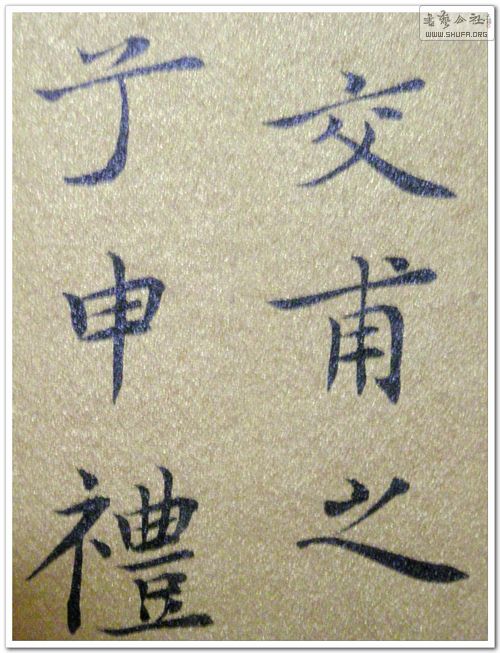 書藝公社
WWW.SHUFA.ORG
交甫之
兮申禮